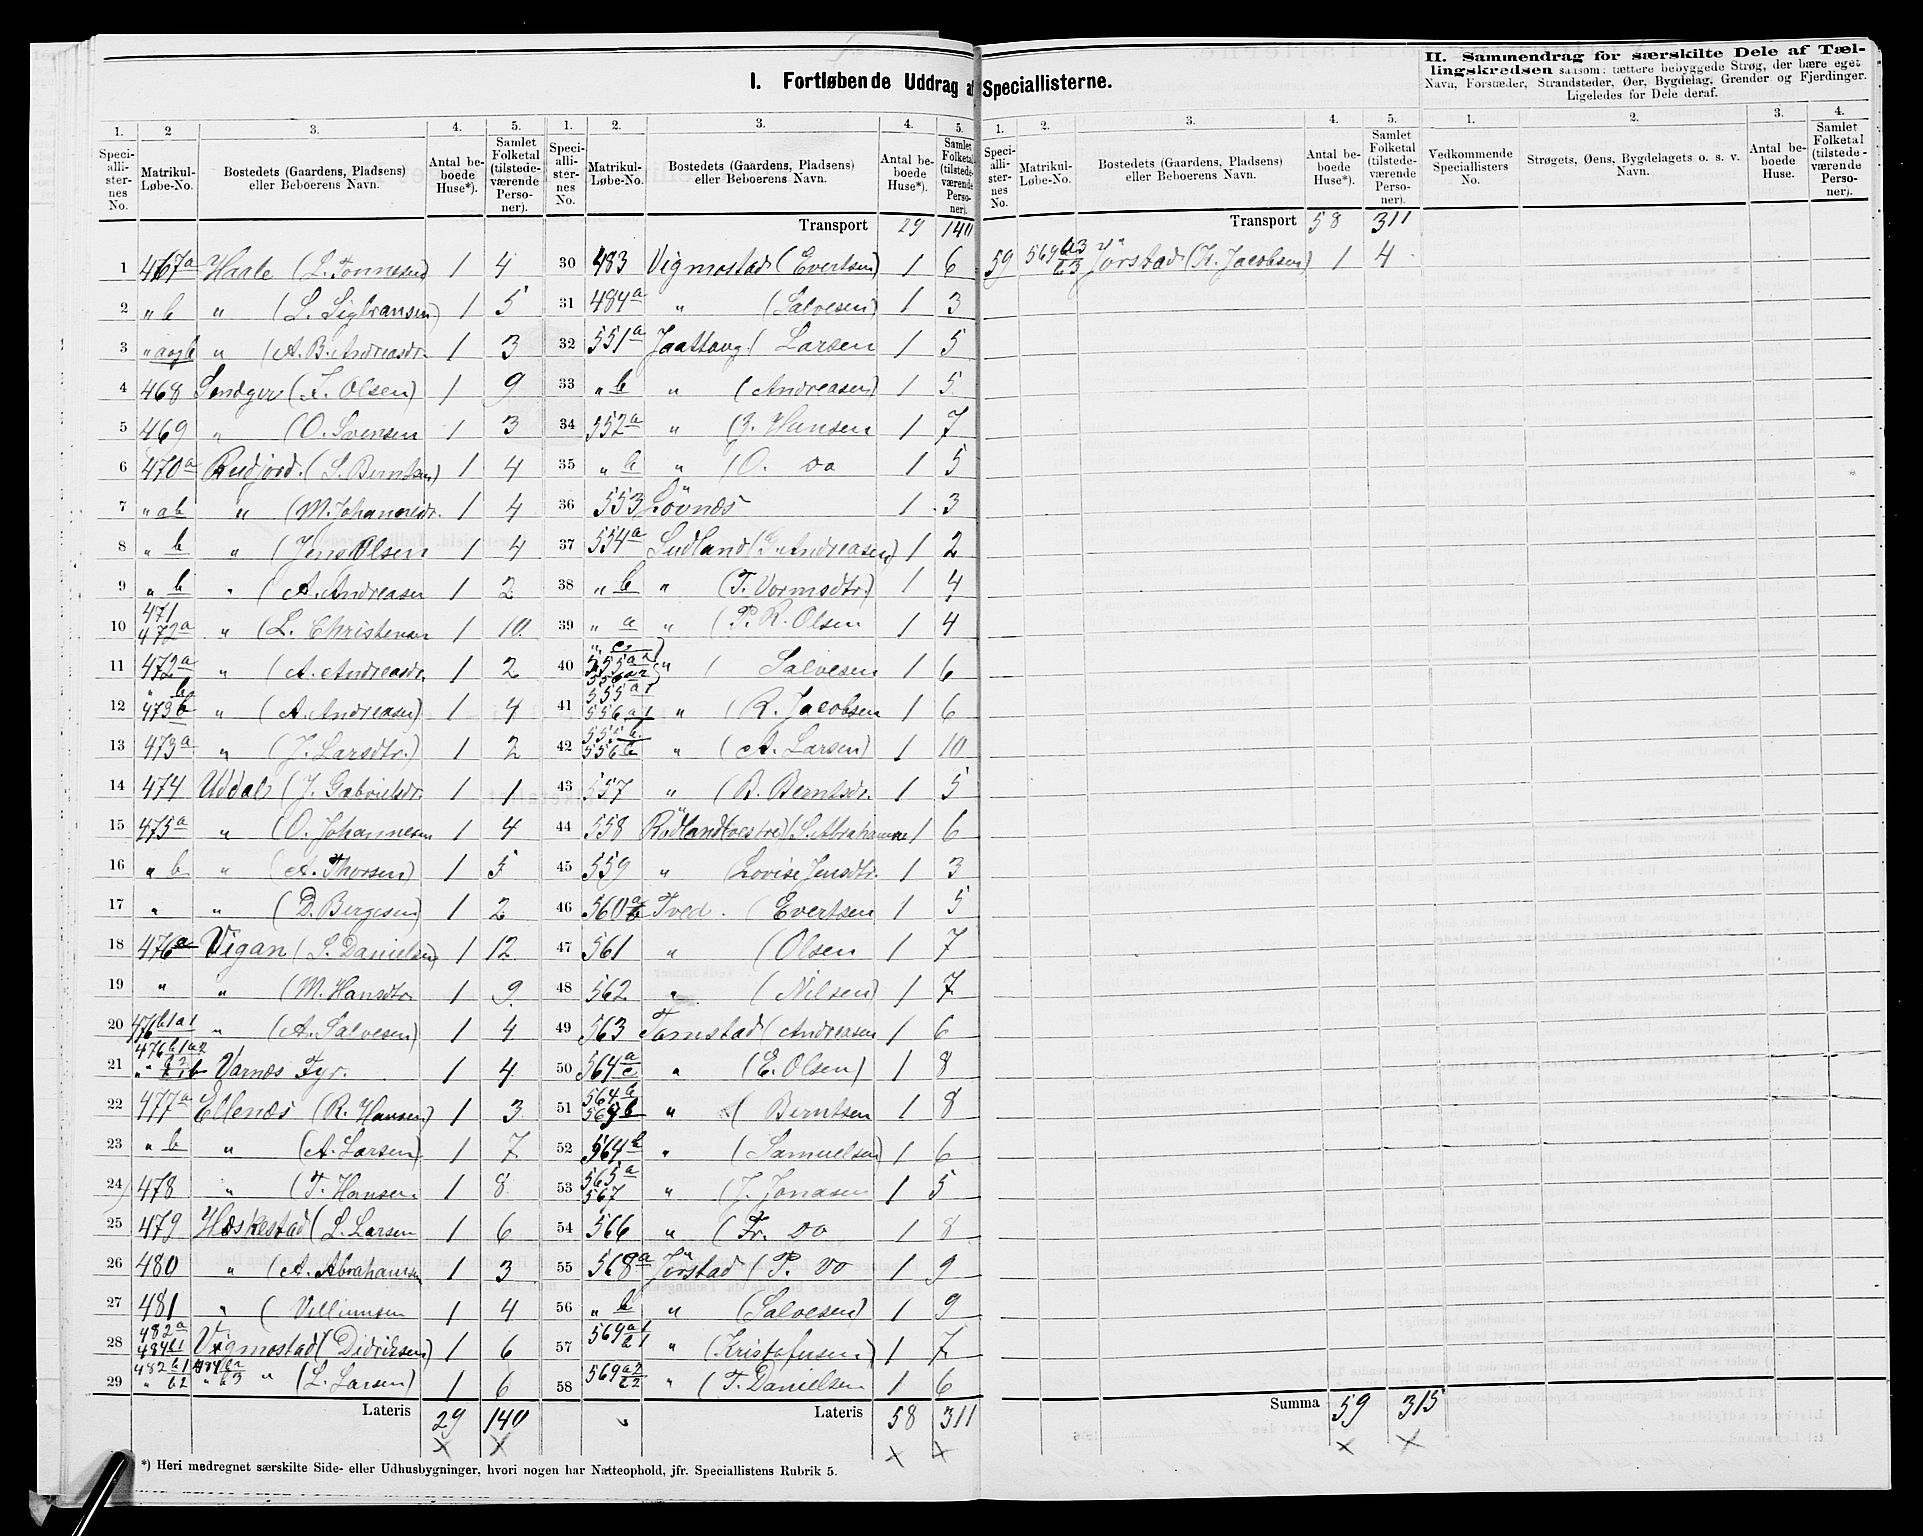 I. Fortløbende Uddrag af Speciallisterne.
II. Sammendrag for særskilte Dele af Tæl-
lingskredsen saasom: tættere bebyggede Strøg, der bære eget
Navn, Forstæder, Strandsteder, Øer, Bygdelag, Grender og Fjerdinger.
Ligeledes for Dele deraf.
1. 2 3. 4. 5.
Speci-alli-ster-nes No. Matrikul-Løbe-No. Bostedets (Gaardens, Pladsens) eller Beboerens Navn. Antal be-boede Huse*). Samlet Folketal (tilstede-værende Perso-ner).
1 467a Haale (L. Tønnesen) 1 4
2 " b " (L. Sigbransen) 1 5
3 " aogb " (A. B. Andreasdr. 1 3
4 468 (T. Olsen) 1 9
5 469 " (O. Svensen 1 3
6 470a Rudjord (S. Berntsen) 1 4
7 " ab " (M. Johannesdr. 1 4
8 " b " (Jens Olsen 1 4
9 " b " (A. Andreasen 1 2
10 471 472a " (L. Christensen 1 10
11 472a " (A. Andreasdr. 1 2
12 " b 473b " (A. Andreasen) 1 4
13 473a " (J. Larsdtr.) 1 2
14 474 Uddal (J. Gabrielsdr. 1 1
15 475a " (O. Johannesen 1 4
16 " b " (A. Thorsen) 1 5
17 " " (D. Bergesen) 1 2
18 476a Vigan (S. Danielsen) 1 12
19 " " (M. Hansdtr. 1 9
20 476b1a1 " (A. Salvesen) 1 4
21 476b1a2 Varnæs Fyr. 1 4
22 477a Ellenæs (R. Hansen) 1 3
23 " b " (A. Larsen) 1 7
24 478 " (T. Hansen. 1 8
25 479 Hæskestad (L. Larsen 1 6
26 480 " (A. Abrahamsen 1 3
27 481 " (Villiumsen 1 4
28 482a 484b1 Vigmostad (Didriksen) 1 6
29 482b1 " b2 484b2 " b3 " (L. Larsen) 1 6
Lateris 29 140
1. 2. 3. 4. 5.
Speci-alli-ster-nes No. Matrikul-Løbe-No. Bostedets (Gaardens, Pladsens) eller Beboerens Navn. Antal be-boede Huse*). Samlet Folketal (tilstede-værende Perso-ner).
Transport 29 140
30 483 Vigmostad (Evertsen) 1 6
31 484a " (Salvesen) 1 3
32 551a Jaattaug (Larsen 1 5
33 " b " (Andreasen) 1 5
34 552a " (J. Hansen 1 7
35 " b " (O. do 1 5
36 553 Lövnæs 1 3
37 554a Ludland (G. Andreasen) 1 2
38 " b " (T. Vormsdtr.) 1 4
39 " a " (P. R. Olsen 1 4
40 " c 555a2 556a2 " (Salvesen 1 6
41 555a1 556a1 " (R. Jacobsen 1 6
42 555b 556b " (A. Larsen) 1 10
43 557 " (B. Berntsdr. 1 5
44 558 Rödland (vestre) (S. Abrahamsen 1 6
45 559 " (Lovise Jensdtr. 1 3
46 560a b Tved. (Evertsen 1 5
47 561 " (Olsen 1 7
48 562 " (Nilsen) 1 7
49 563 Tomstad (Andreasen 1 6
50 564a c " (E. Olsen) 1 8
51 564b 569b " (Berntsen 1 8
52 564b " (Samuelsen) 1 6
53 565a 567 " (J. Jonasen 1 5
54 566 " (Fr. do 1 8
55 568a Jörstad (P. do 1 9
56 " b " (Salvesen) 1 9
57 569a1 b1 " (Kristofersen) 1 7
58 569a2 b2 " (T. Danielsen 1 6
Lateris 58 311
1. 2. 3. 4. 5.
Speci-alli-ster-nes No. Matrikul-Løbe-No. Bostedets (Gaardens, Pladsens) eller Beboerens Navn. Antal be-boede Huse*). Samlet Folketal (tilstede-værende Perso-ner).
Transport 58 311
59 569a3 b3 Jörstad (K. Jacobsen) 1 4
Summa 59 315
1. 2. 3. 4.
Vedkommende Speciallisters No. Strøgets, Øens, Bygdelagets o. s. v. Navn. Antal be-boede Huse. Samlet Folketal (tilstede-værende Perso-ner).
*) Heri medregnet særskilte Side- eller Udhusbygninger, hvori nogen har Natteophold, jfr. Speciallistens Rubrik 5.